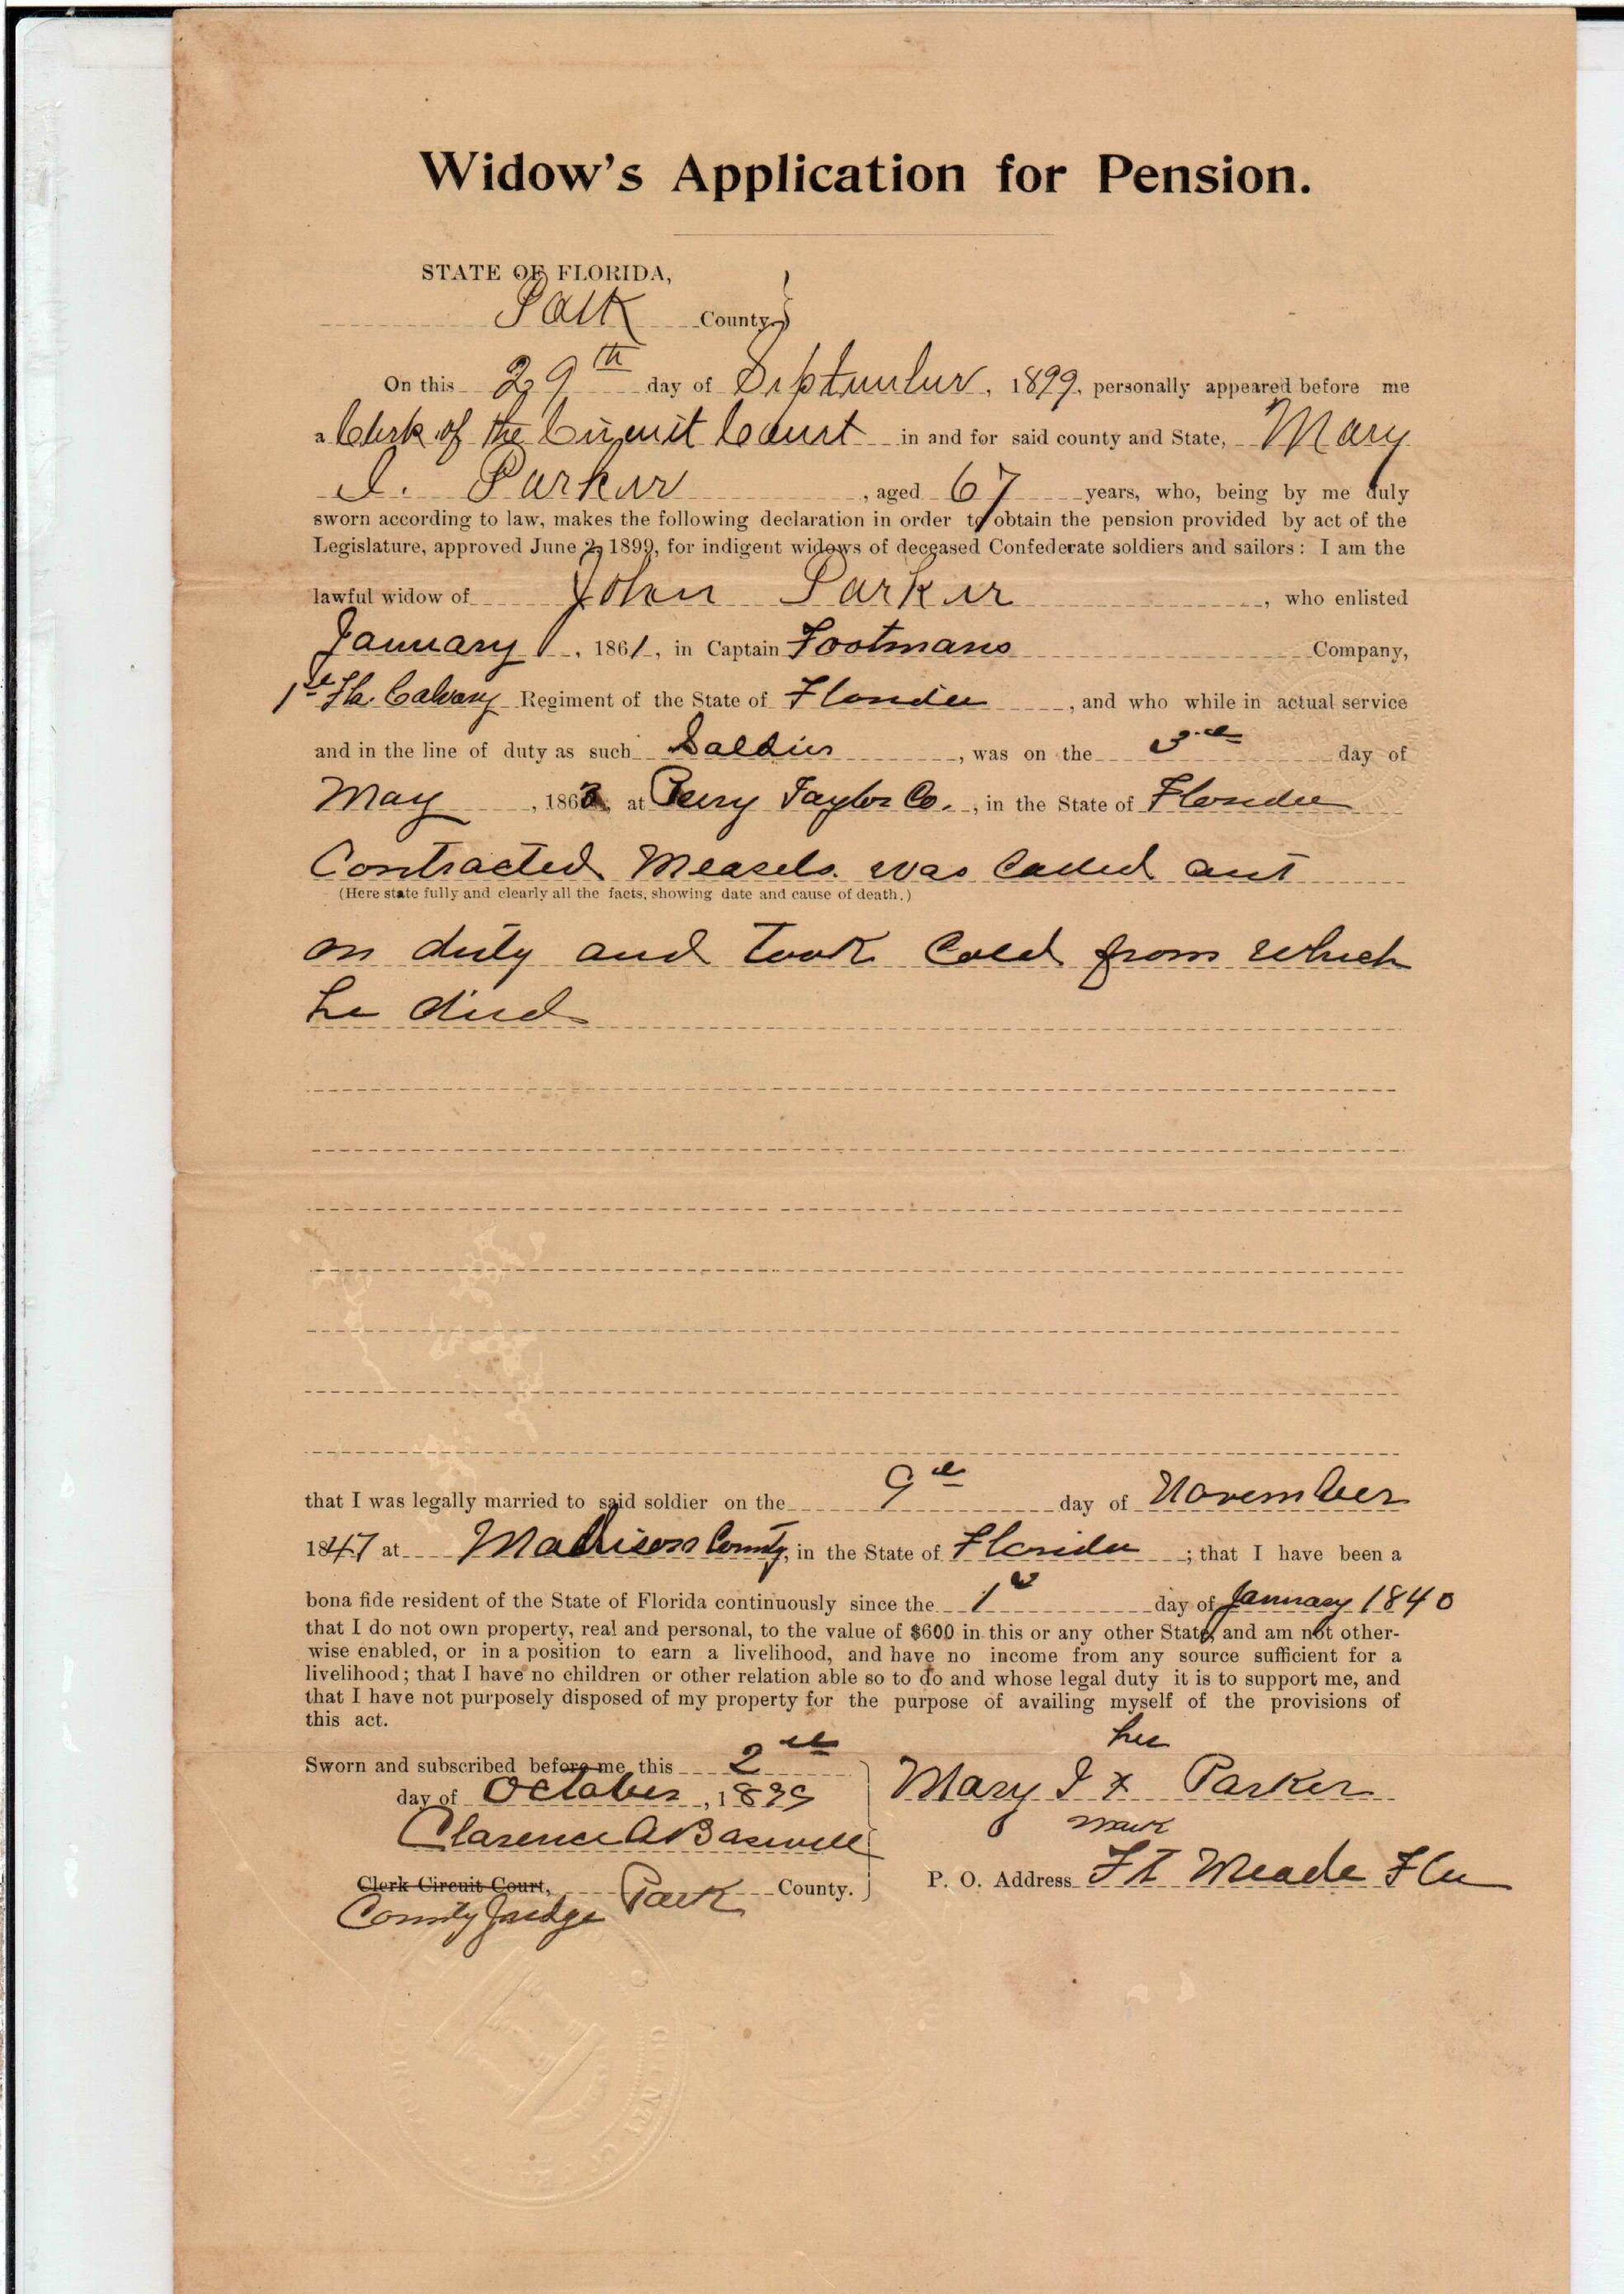 Widow's Application for Pension.
STATE OF FLORIDA,
Polk County.
On this 29th day of September, 1899, personally appeared before me
a Clerk of the Circuit Court in and for said county and State, Mary
I. Parker, aged 67 years, who, being by me duly
sworn according to law, makes the following declaration in order to obtain the pension provided by act of the
Legislature, approved June 2, 1899, for indigent widows of deceased Confederate soldiers and sailors: I am the
lawful widow of John Parker, who enlisted
January 1, 1861, in Captain Footmans Company,
1st Fla. Calvary Regiment of the State of Florida, and who while in actual service
and in the line of duty as such Soldier, was on the 3rd day of
May, 1863, at Perry Taylor Co., in the State of Florida
Contracted Measels. was Called out
(Here state fully and clearly all the facts, showing date and cause of death.)
on duty and took Cold from which
he died
that I was legally married to said soldier on the 9th day of November
1847 at Madison County, in the State of Florida; that I have been a
bona fide resident of the State of Florida continuously since the 1st day of January 1840
that I do not own property, real and personal, to the value of $600 in this or any other State, and am not other-
wise enabled, or in a position to earn a livelihood, and have no income from any source sufficient for a
livelihood; that I have no children or other relation able so to do and whose legal duty it is to support me, and
that I have not purposely disposed of my property for the purpose of availing myself of the provisions of
this act.
her
Sworn and subscribed before me this 2nd
Mary I x Parker
day of October, 1899
mark
Clarence A Boswell
P. O. Address Ft Meade Fla
Clerk Circuit Court, Polk County.
County Judge